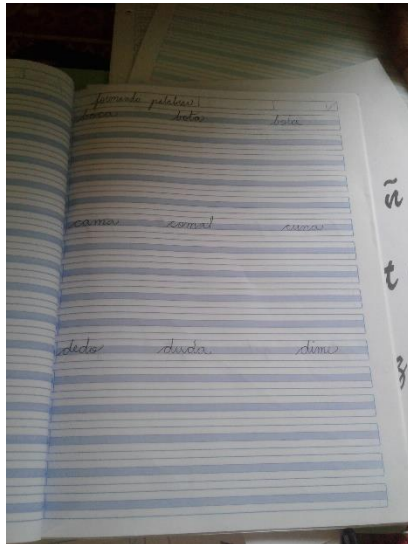 formando palabras
boca bota bola
cama comal cuna
dedo duda dime
ñ
t